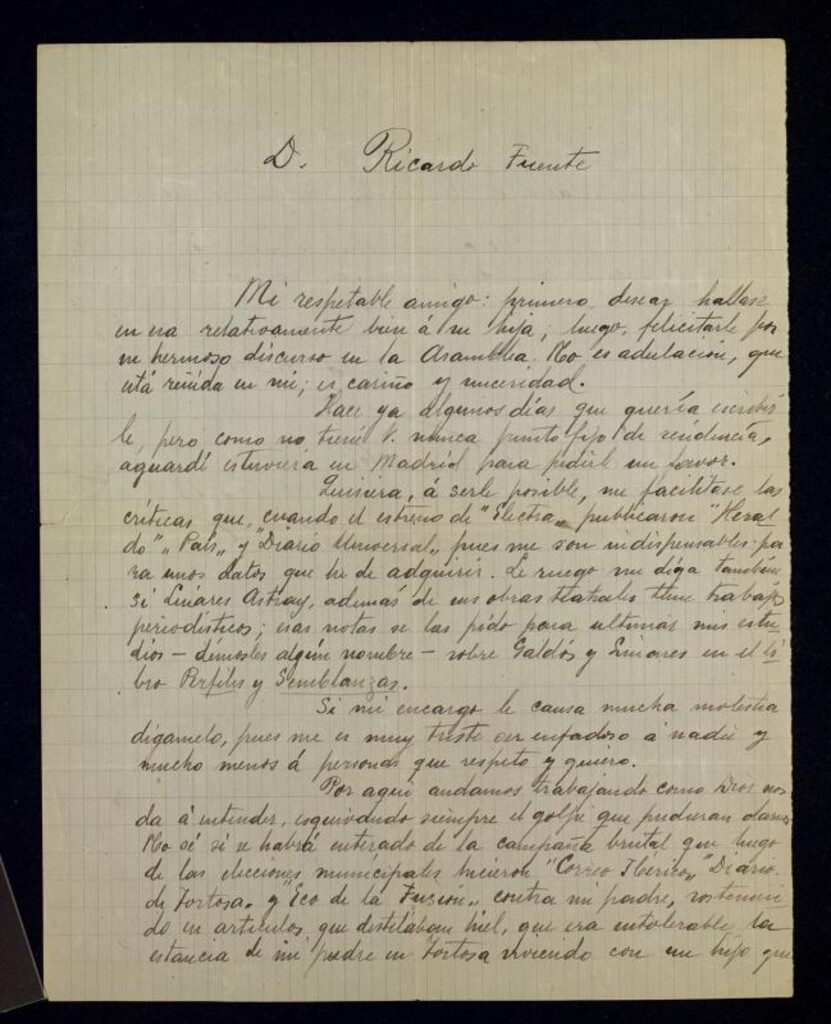 D. Ricardo Fuente
Mi respetable amigo: primero, desear hallase
en esa relativamente bien á su hija; luego, felicitarle por
su hermoso discurso en la Asamblea. No es adulación, que
está reñida en mi; es cariño y sinceridad.
Hace ya algunos días que quería escribir
le, pero como no tiene V. nunca punto fijo de residencia,
aguardé estuviera en Madrid para pedirle un favor.
Quisiera, á serle posible, me facilitase las
críticas que, cuando el estreno de "Electra„ publicaron "Heral
do"„ "País„ y "Diario Universal„ pues me son indispensables pa
ra unos datos que he de adquirir. Le ruego me diga también
si Linares Astray, además de sus obras teatrales tiene trabajos
periodísticos; esas notas se las pido para ultimar mis estu
dios — démosles algún nombre — sobre Galdós y Linares en el li
bro Perfiles y Semblanzas.
Si mi encargo le causa mucha molestia
digamelo, pues me es muy triste ser enfadoso á nadie y
mucho menos á personas que respeto y quiero.
Por aquí andamos trabajando como Dios nos
da á entender, esquivando siempre el golpe que pudieran darnos
No sé si se habrá enterado de la campaña brutal que luego
de las elecciones municipales hicieron "Correo Ibérico„ "Diario
de Tortosa„ y "Eco de la Fusión„ contra mi padre, sostenien
do en artículos que destilaban hiel, que era intolerable la
estancia de mi padre en Tortosa viviendo con un hijo que